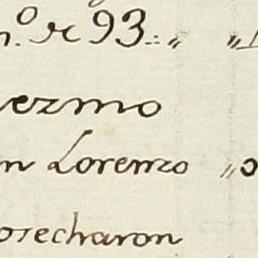 n.º de 93.
ezmo
n Lorenzo
osecharon